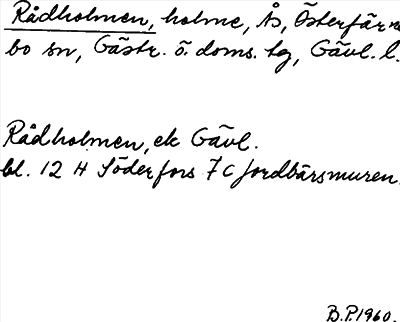 Rådholmen, holme, Ås, Österfärne
bo sn, Gästr. ö. doms. tg, Gävl. l.
Rådholmen, ek Gävl.
bl. 12 H Söderfors 7 c Jordbärsmuren.
B.P. 1960.